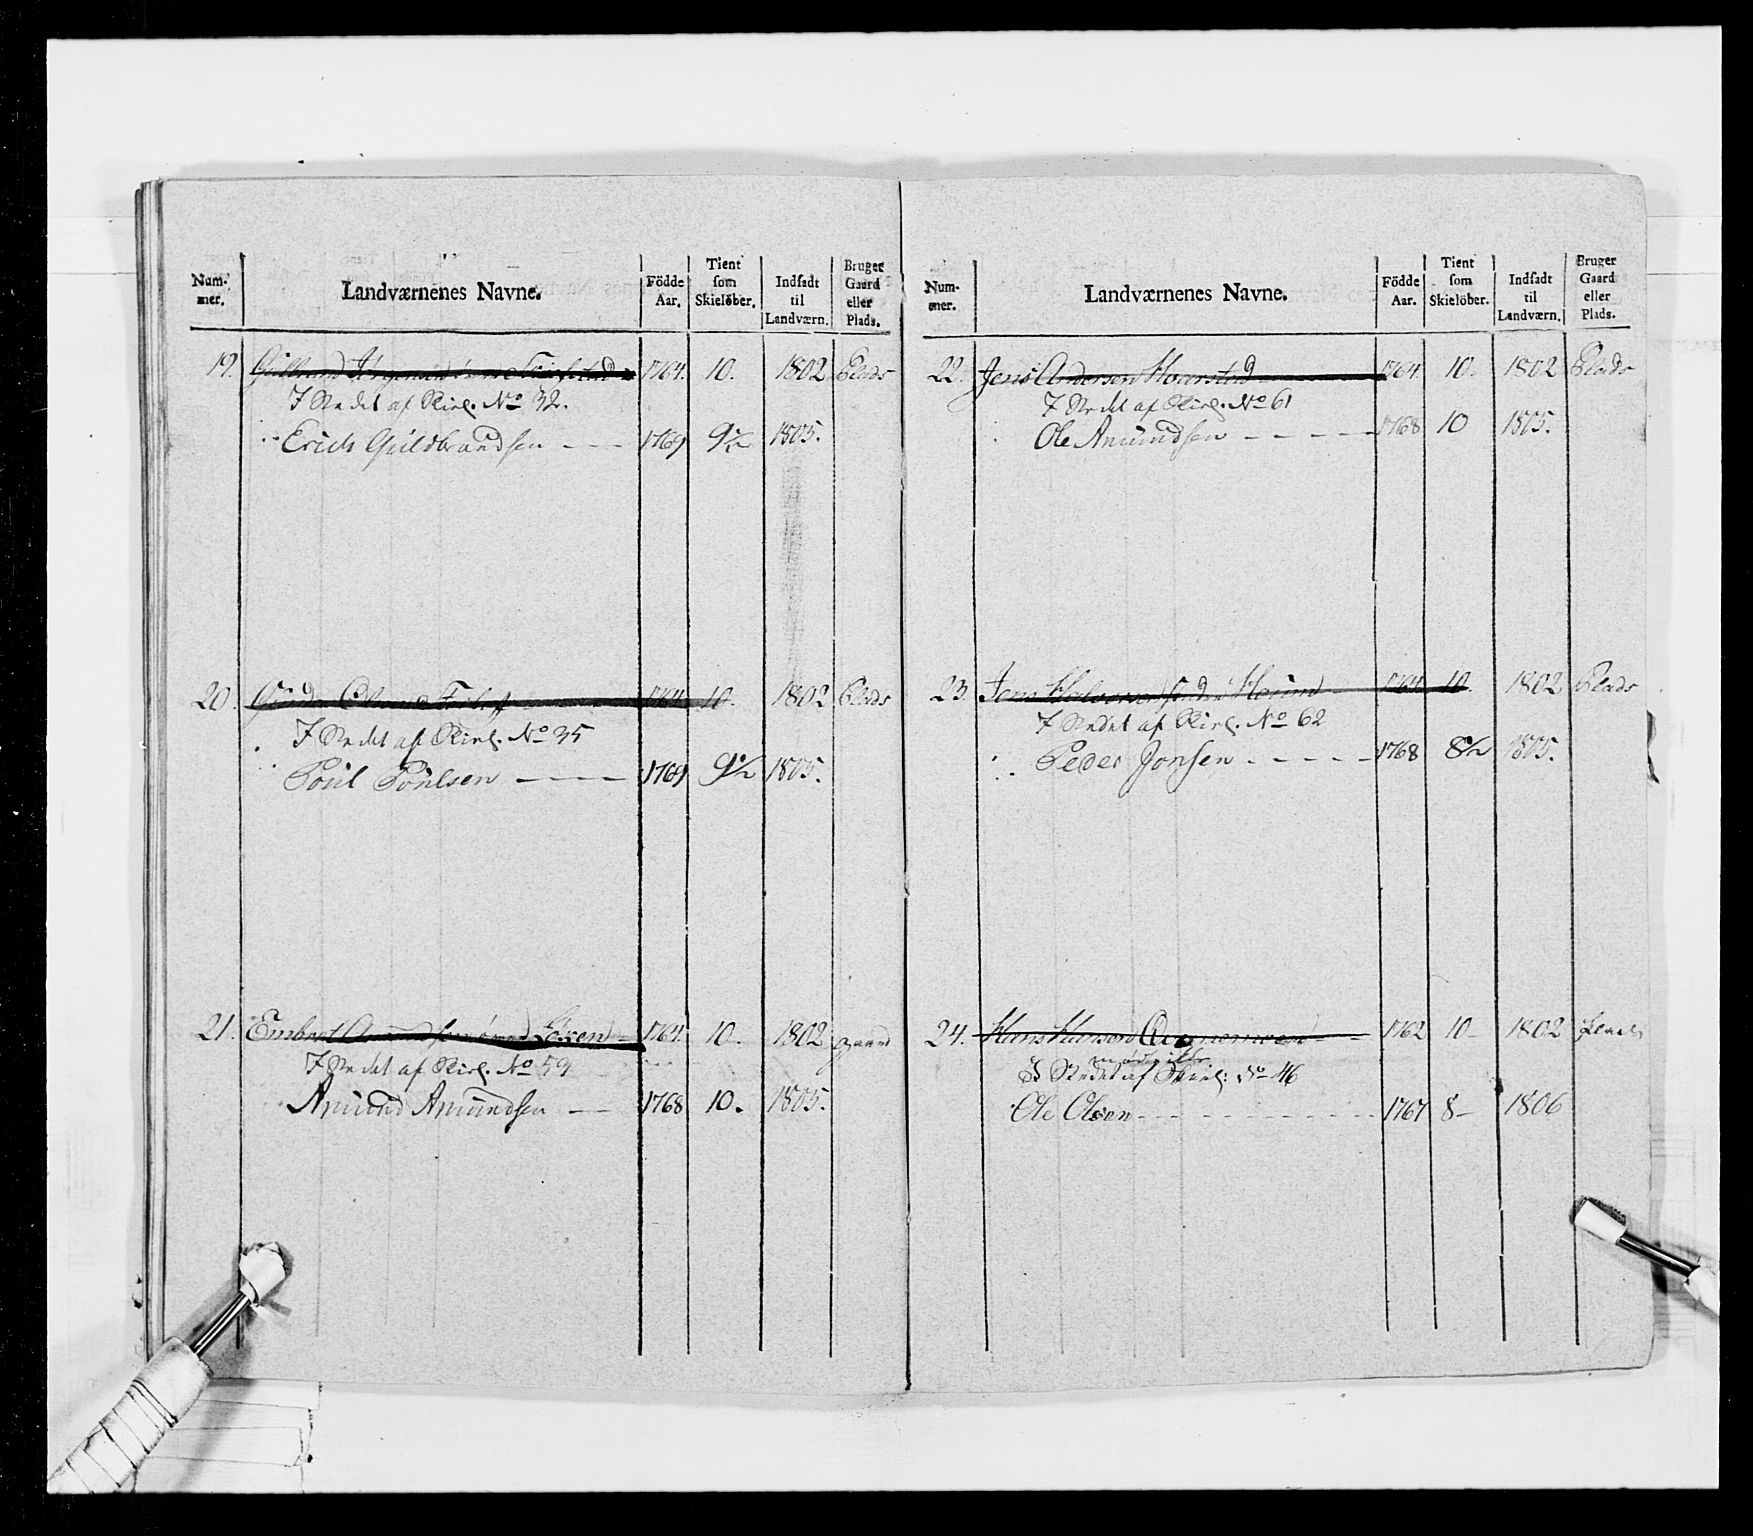 Num-mer. Landværnenes Navne. Födde Aar. Tient som Skielöber. Indsadt til Landværn. Bruger Gaard eller Plads.
19. Guldbrand Jörgensen 1764. 10. 1802 Plads
I Stedet af Skiel. No 32.
Erich Guldbrandsen - - - 1769 9½ 1805.
20. 1764 10. 1802 Plads
I Stedet af Skiel. No 35
Poul Poulsen - - - 1769 9½ 1805.
21. Embret 1764. 10. 1802 gaard
I Stedet af Skiel. No 59
Amund Amundsen - - 1768 10. 1805.
Num-mer. Landværnenes Navne. Födde Aar. Tient som Skielöber. Indsadt til Landværn. Bruger Gaard eller Plads.
22. Jens Andersen Hvarstad 1764. 10. 1802 Plads
I Stedet af Skiel. No 61
Ole Amundsen - - - - 1768 10 1805.
23 Jens Halvorsen 1764 10. 1802 Plads
I Stedet af Skiel. No 62
Peder Jonsen - - - - 1768 8½ 1805.
24. Hans Hansen 1762 10- 1802 plads
I Stedet af Skiel: No 46
Ole Olsen - - - - - - 1767 8- 1806